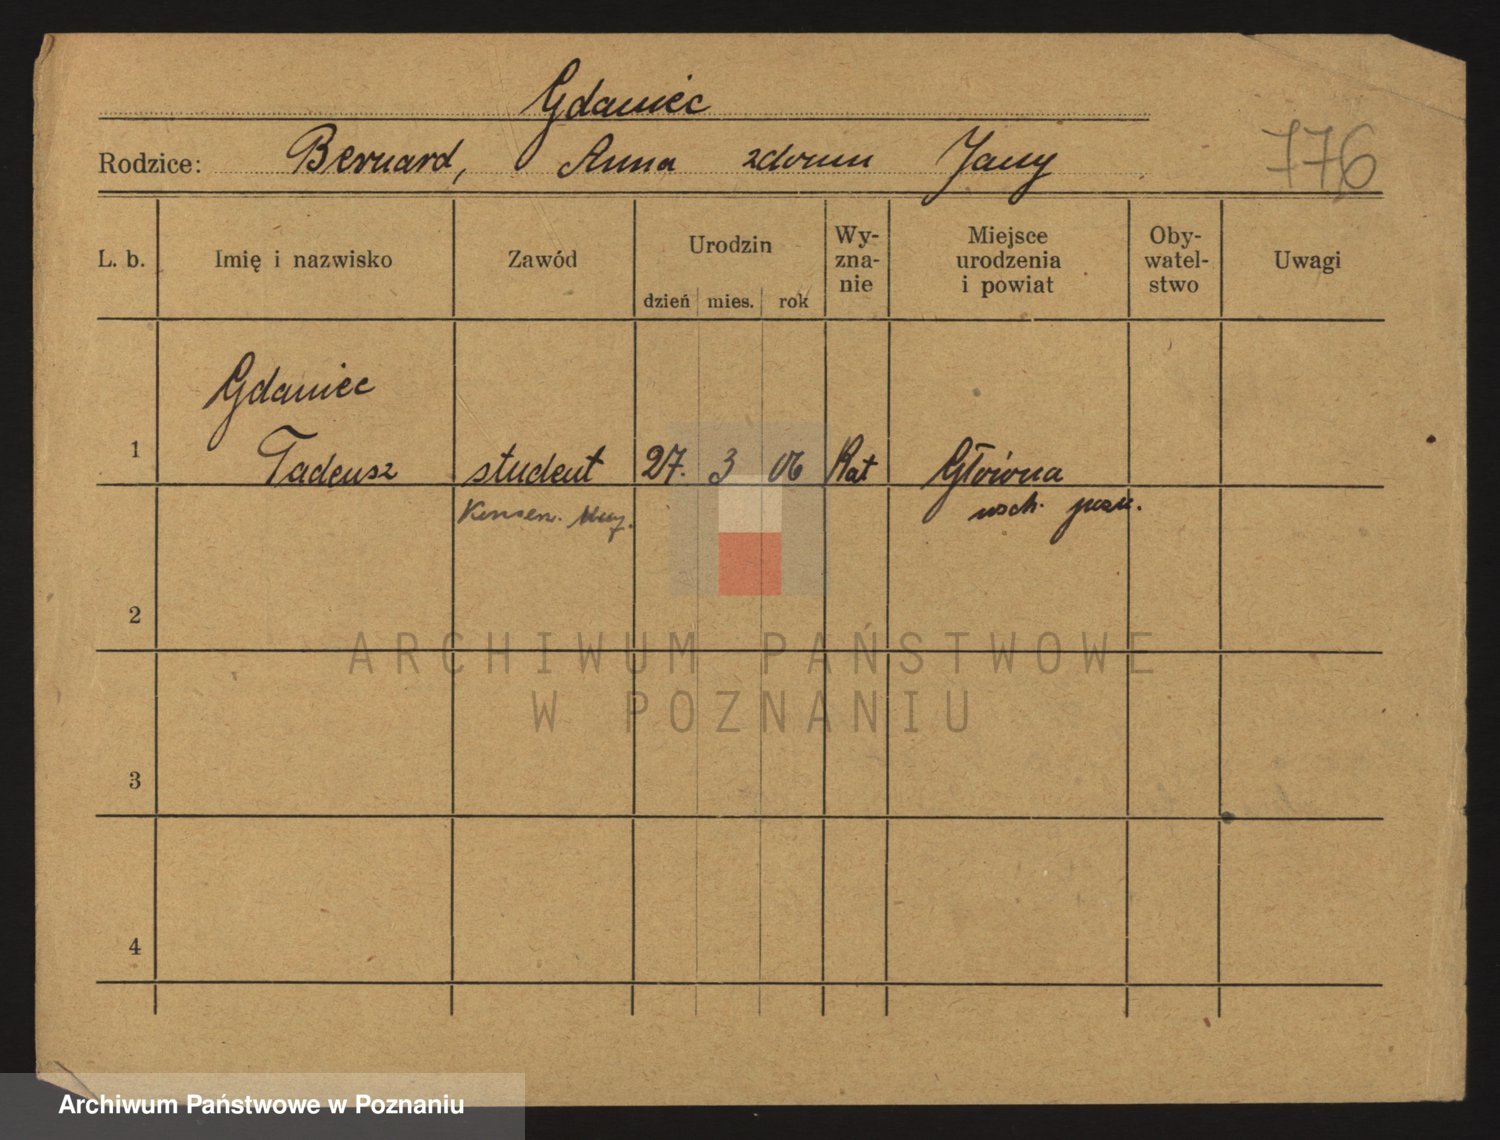 Gdaniec
Rodzice: Bernard, Anna zdomu Jany
776
L. b. Imię i nazwisko Zawód Urodzin Wy-zna-nie Miejsce urodzenia i powiat Oby-watel-stwo Uwagi
dzień mies. rok
Gdaniec
1 Tadeusz student 27. 3 06 Kat Główna
wsch. pozn.
2
ARCHIWUM PAŃSTWOWE
W POZNANIU
3
4
Archiwum Państwowe w Poznaniu